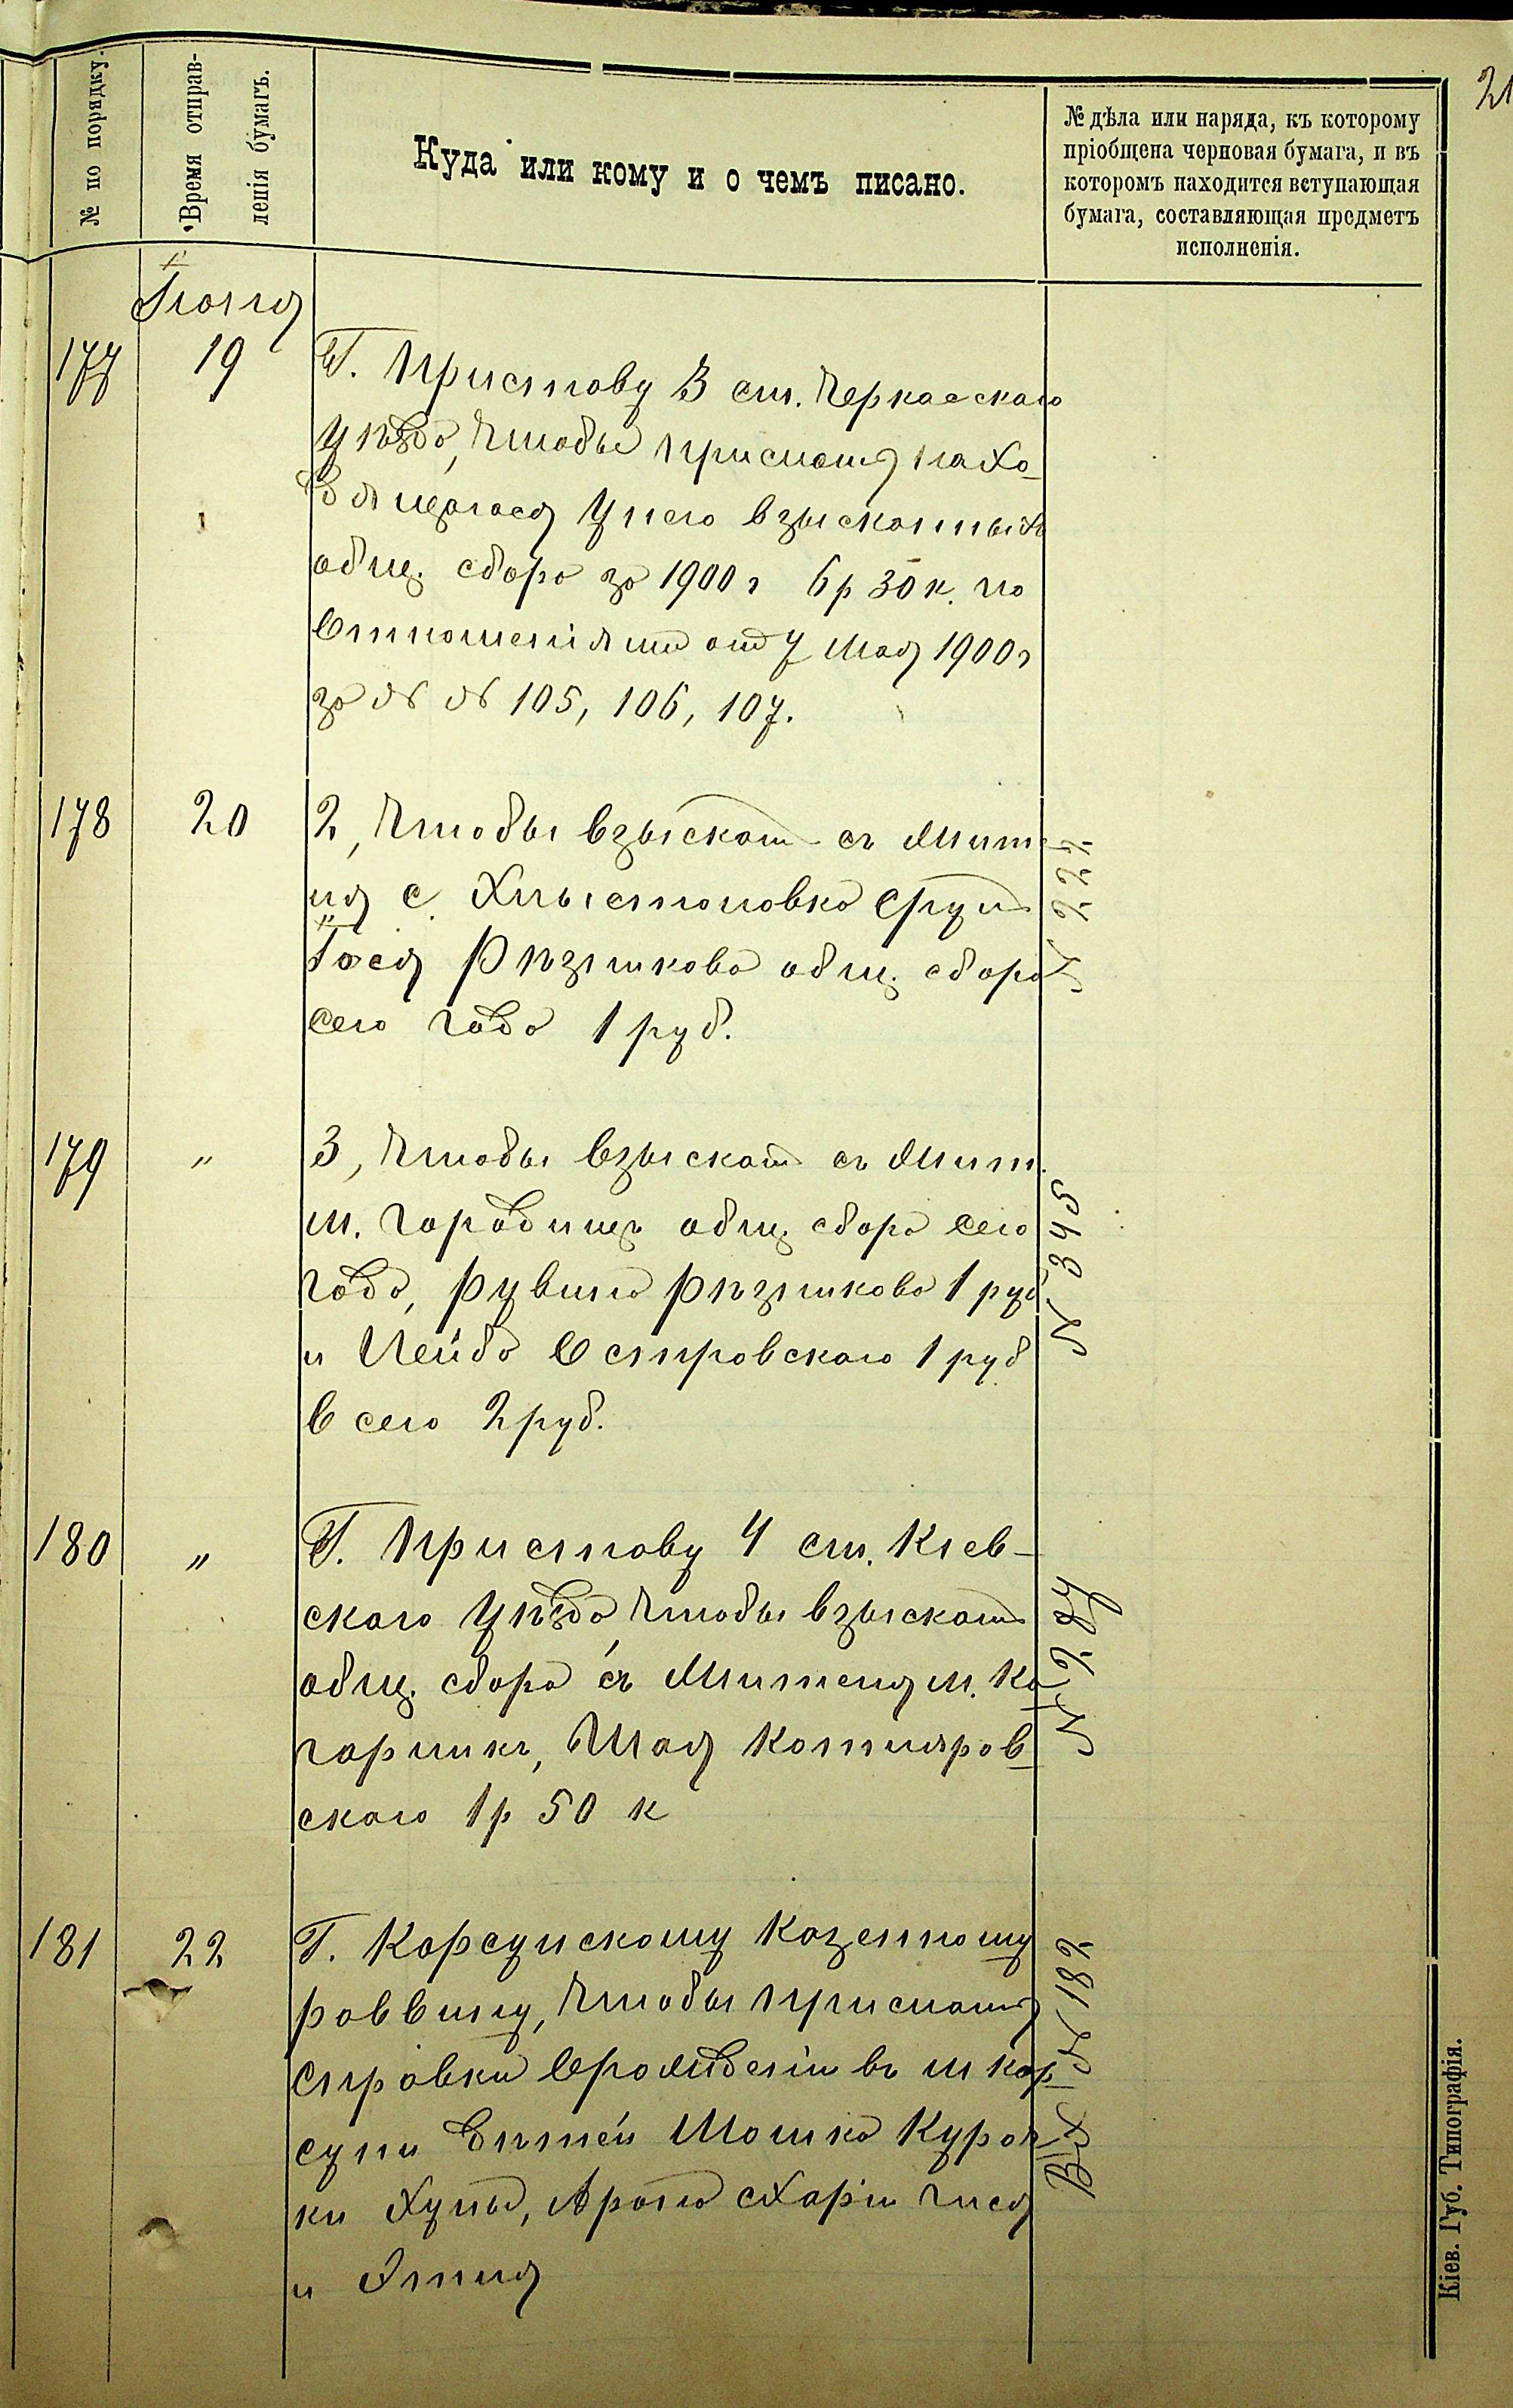 21
№ по порядку.
Время отправ-
ленія бумагъ.
Куда или кому и о чемъ писано.
№ дѣла или наряда, къ которому
пріобщена черновая бумага, и въ
которомъ находится вступающая
бумага, составляющая предметъ
исполненія.
177
19
Г. Приставу 3 ст. Черкасскаго
уѣзда, чтобы присмать нахо-
дящагося у него взысканныхъ
общ. сбора за 1900 г 6 р 30 к. по
Отношеніямъ отъ 7 мая 1900 г
за №№ 105, 106, 107.
178
20
2, Чтобы взыскать съ Жит
ля с. Хлыстоновка
общ. сбора
сего года 1 руб.
№ 222
179
"
3, Чтобы взыскать съ Жит.
м. Городище общ. сбора сего
года, Рувина Рѣзникова 1 руб
и Лейба Островскаго 1 руб
Всего 2 руб.
№ 345
180
"
Г. Приставу 4 ст. Кіев-
скаго уѣзда, чтобы взыскать
общ. сбора съ Жителя м. Ка
гарлика, Шая Котляров-
скаго 1 р 50 к
181
22
Г. Корсунскому Казенному
раввину, чтобы присмать
справки о рожденіи въ м Кор
суни дѣтей Мошка
и
Вх № 182
Кіев. Губ. Типографія.